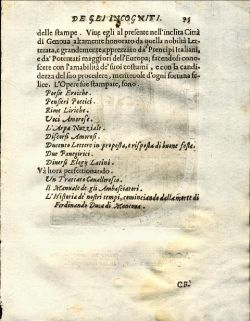 DE GLI INCOGNITI. 95
delle stampe. Viue egli al presente nell'inclita Città
di Genoua altamente honorato da quella nobiltà Let-
terata, e grandemente apprezzato da' Prencipi Italiani,
e da' Potentati maggiori dell'Europa; facendosi conos-
scere con l'amabilità de' suoi costumi, e con la candi-
dezza del suo procedere, meriteuole d'ogni fortuna fe-
lice. L'Opere sue stampate, sono.
Poesie Eroiche.
Pensieri Poetici.
Rime Liriche.
Voci Amorose.
L'Arpa Nuzziale.
Discorsi Amorosi.
Ducento Lettere in proposta, e risposta di buone feste.
Due Panegirici.
Diuersi Elogij Latini.
Và hora perfezionando.
Vn Trattato Caualleresco.
Il Manuale de gli Ambasciatori.
L'Historia de' nostri tempi, cominciando dalla morte di
Ferdinando Duca di Mantoua.